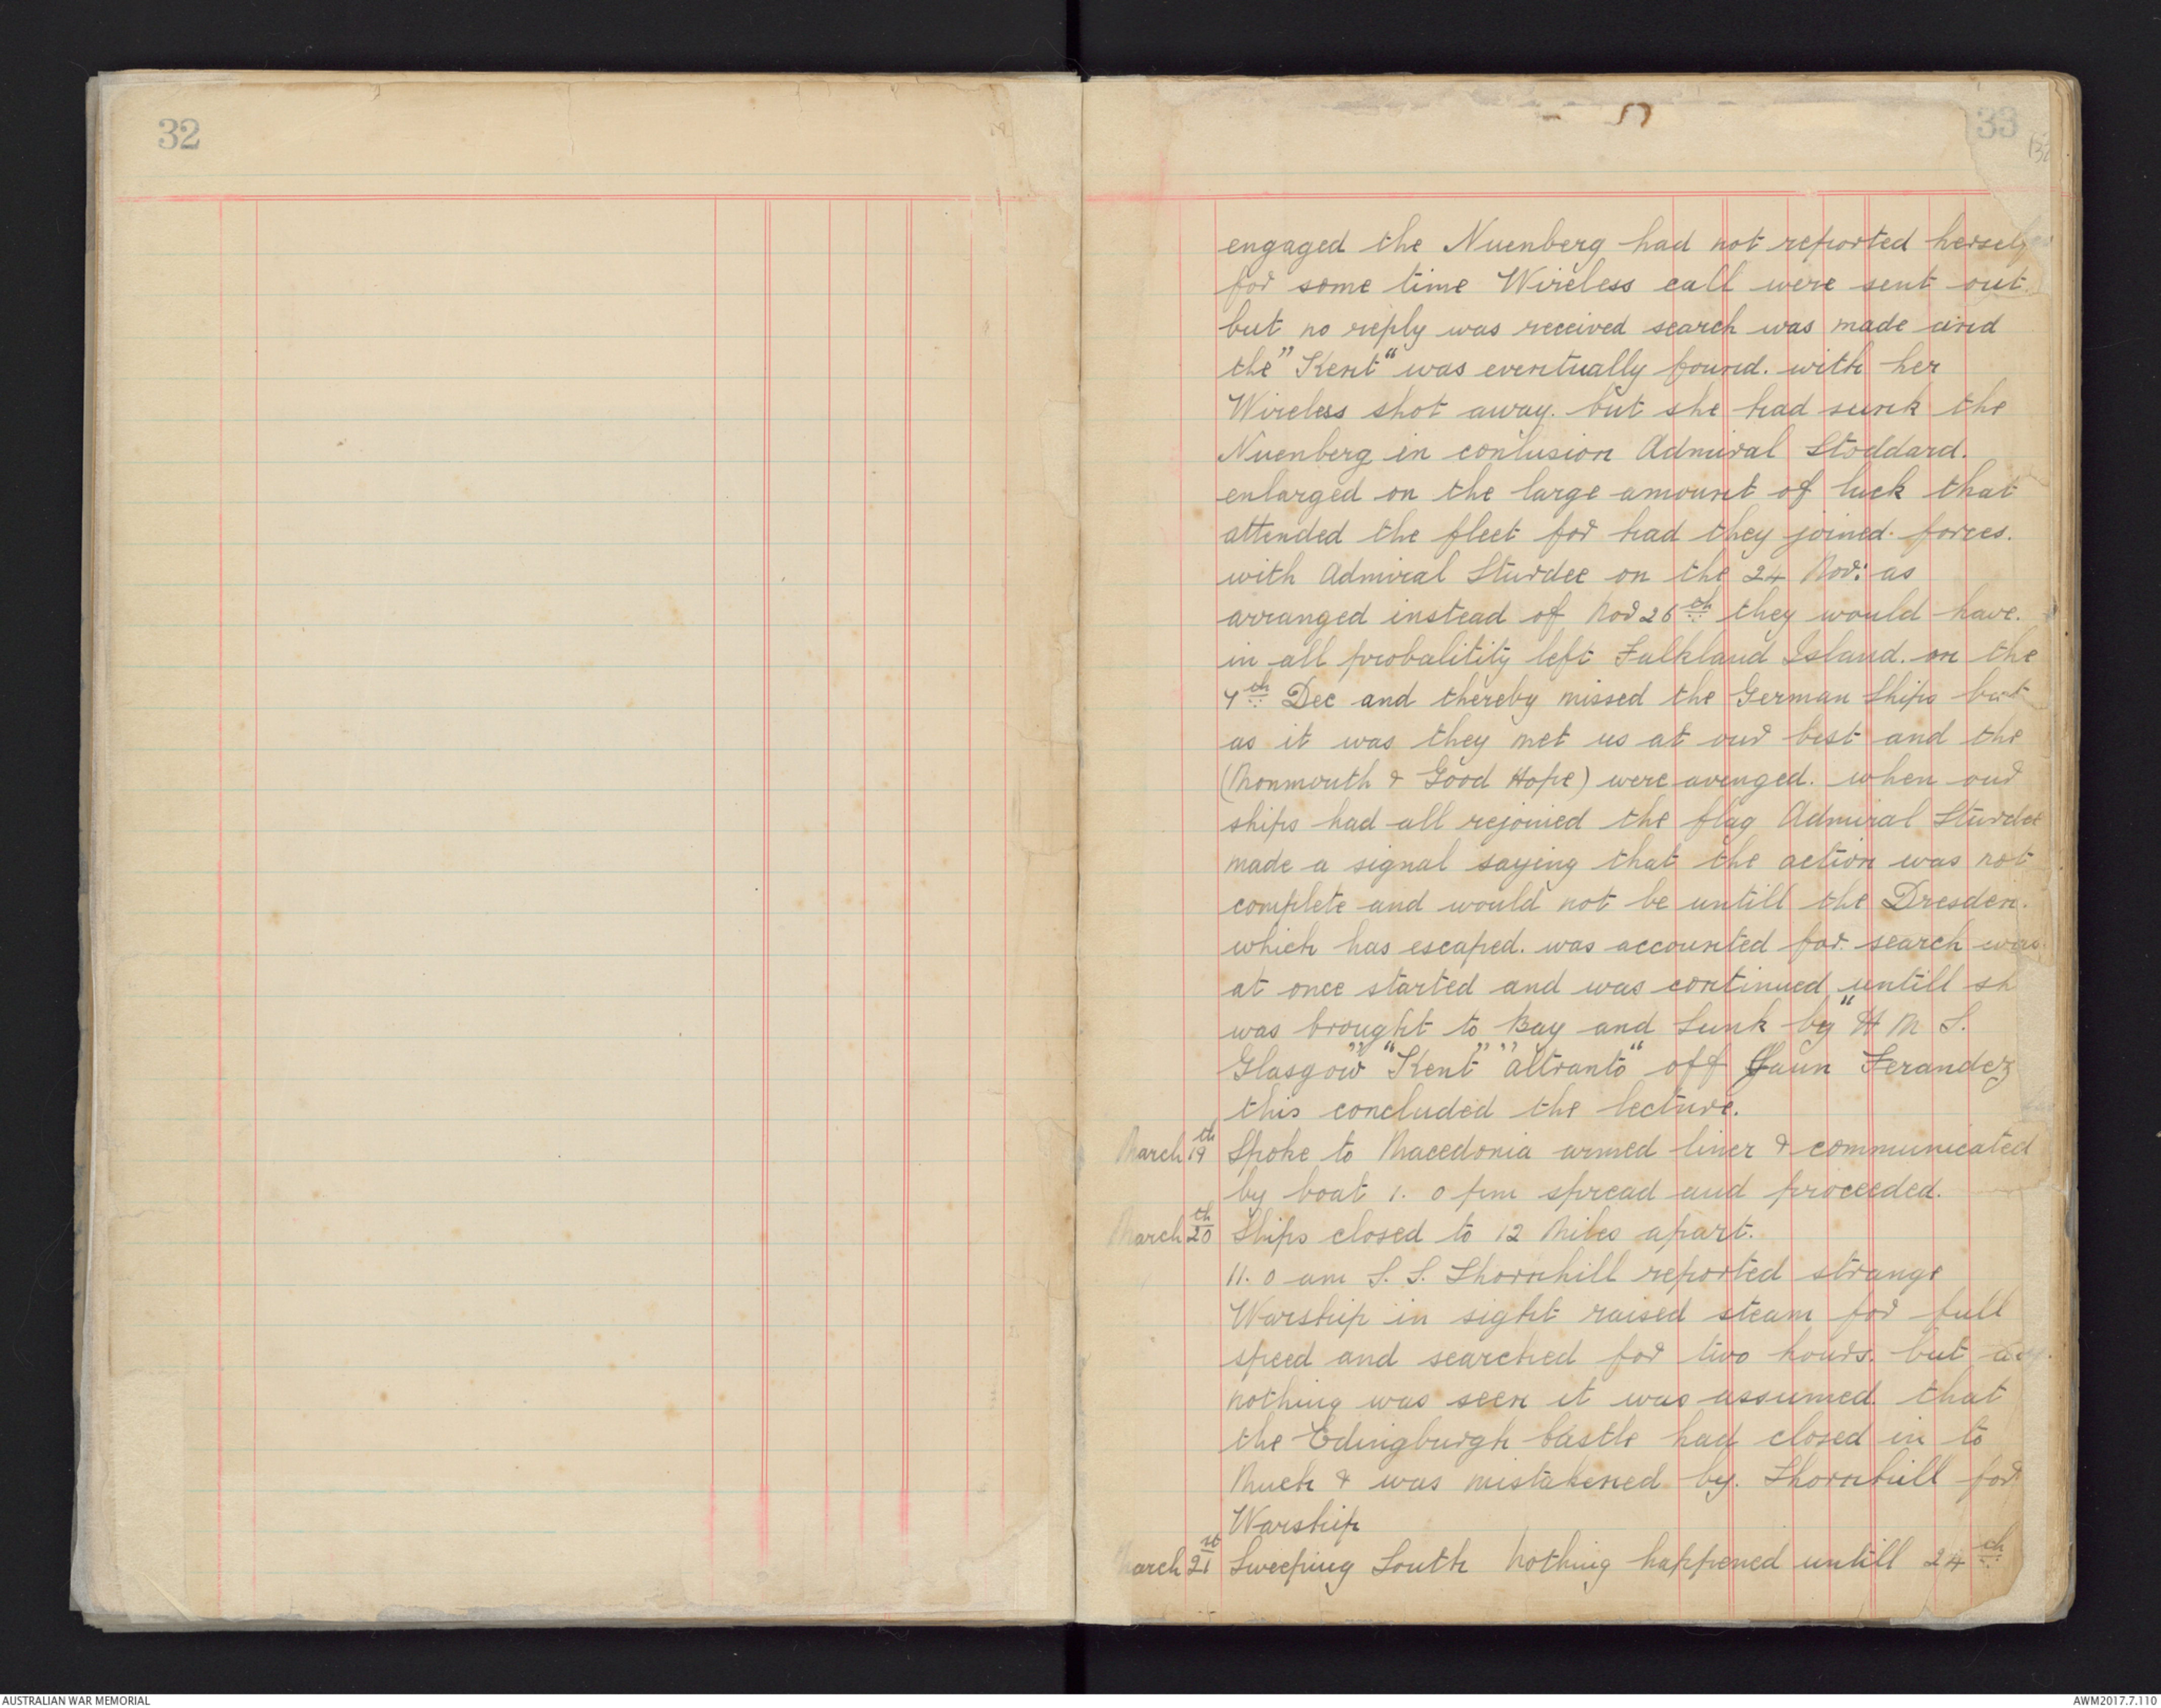 32
33
engaged the Nuenberg had not reported herself
for some time Wireless call were sent out
but no reply was received search was made and
the "Kent" was eventually found. with her
Wireless shot away. but she had sunk the
Nuenberg in conlusion Admiral Stoddard.
enlarged on the large amount of luck that
attended the fleet for had they joined forces.
with Admiral Sturdee on the 24 Nov: as
arranged instead of Nov 26th they would have.
in all probalitity left Falkland Island. on the
4th Dec and thereby missed the German Ships but
as it was they met us at our best and the
(Monmouth & Good Hope) were avenged. when our
ships had all rejoined the flag Admiral Sturdee
made a signal saying that the action was not
complete and would not be untill the Dresden.
which has escaped. was accounted for. search was
at once started and was continued untill sh
was brought to Bay and Sunk by "H M S.
Glasgow" "Kent" "altranto" off Jaun Ferandez
this concluded the lecture.
March 19th Spoke to Macedonia armed liner & communicated
by boat 1. 0 pm spread and proceeded.
March 20th Ships closed to 12 Miles apart.
11. 0 am S. S. Thornhill reported strange
Warship in sight raised steam for full
speed and searched for two hours. but as
nothing was seen it was assumed. that
the Edingburgh Castle had closed in to
Much & was mistakened by. Thornhill for
Warship
March 21st Sweeping South Nothing happened untill 24th
AUSTRALIAN WAR MEMORIAL
AWM2017.7.110